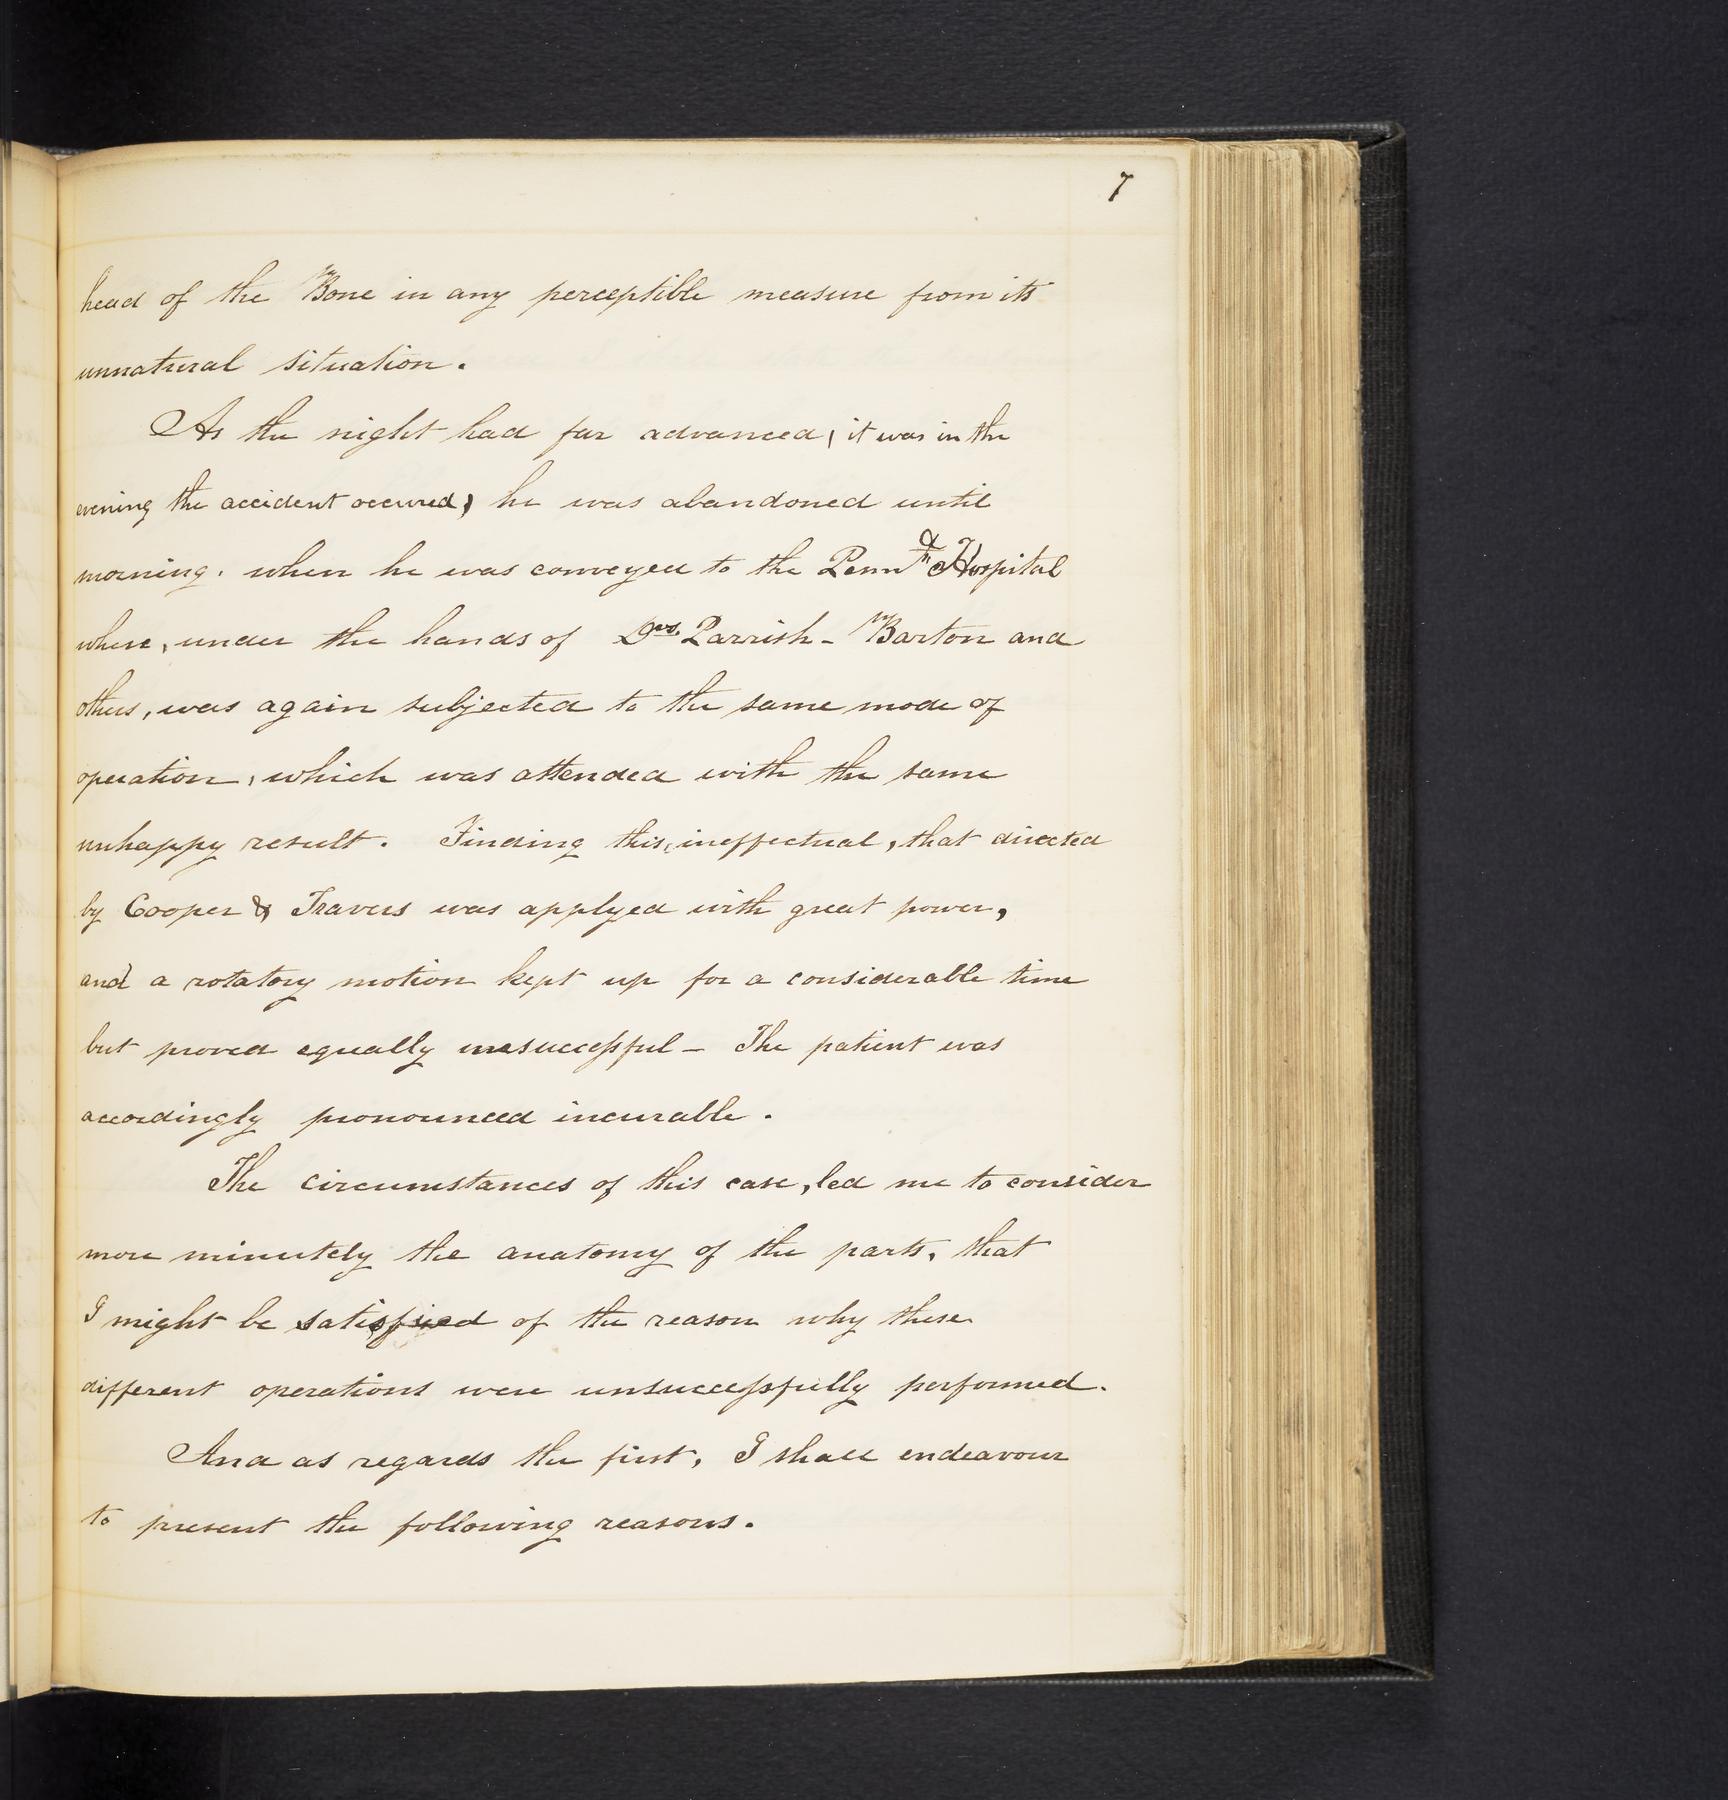 7
head of the Bone in any perceptible measure from its
unnatural situation.
As the night had far advanced, it was in the
evening the accident occured, he was abandoned until
morning. when he was conveyed to the Penn Hospital
where, under the hands of Drs. Parrish - Barton and
others, was again subjected to the same mode of
operation, which was attended with the same
unhappy result. Finding this, ineffectual, that directed
by Cooper & Travers was applyed with great power,
and a rotatory motion kept up for a considerable time
but proved equally unsuccessful - The patient was
accordingly pronounced incurable.
The circumstances of this case, led me to consider
more minutely the anatomy of the parts, that
I might be satisfied of the reason why these
different operations were unsuccessfully performed.
And as regards the first, I shall endeavour
to present the following reasons.